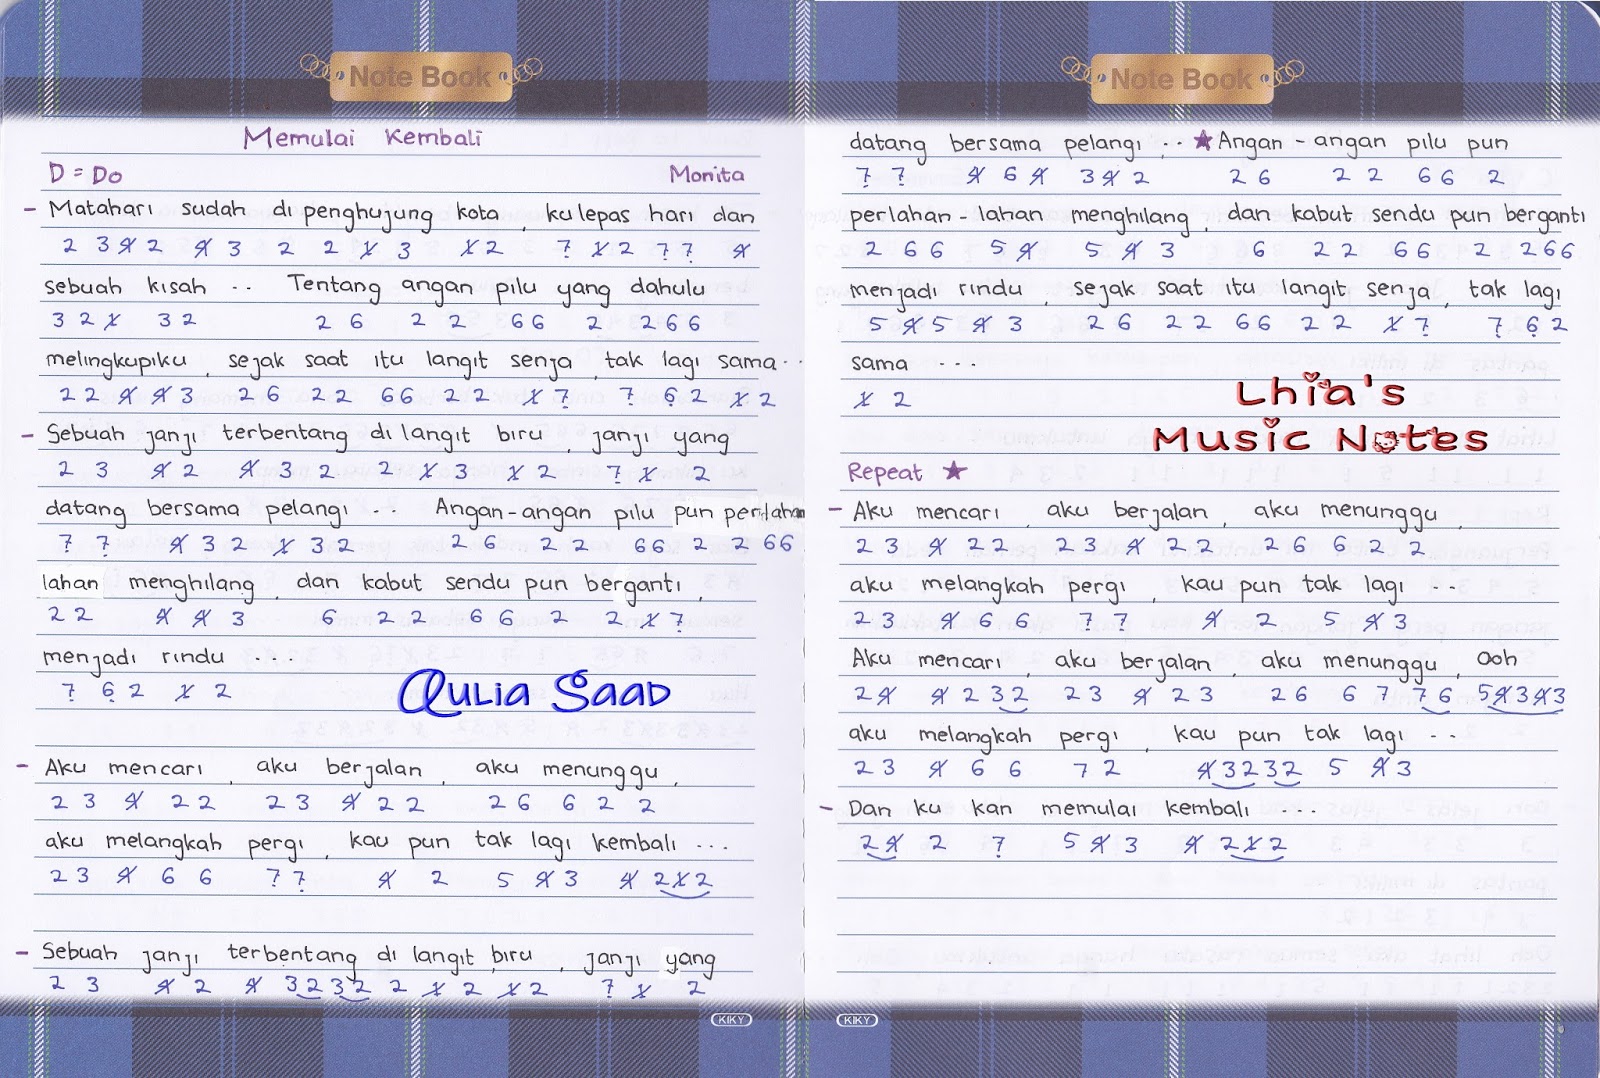 Note Book
Memulai Kembali
D = Do Monita
- Matahari sudah di penghujung kota, ku lepas hari dan
2 3 4̸ 2 4̸ 3 2 2 1̸ 3 1̸ 2 7̣ 1̸ 2 7̣ 7̣ 4̸
sebuah kisah .. Tentang angan pilu yang dahulu
3 2 1̸ 3 2 2 6 2 2 6 6 2 2 6 6
melingkupiku, sejak saat itu langit senja, tak lagi sama..
2 2 4̸ 4̸ 3 2 6 2 2 6 6 2 2 1̸ 7̣ 7̣ 6̣ 2 1̸ 2
- Sebuah janji terbentang di langit biru, janji yang
2 3 4̸ 2 4̸ 3 2 2 1̸ 3 1̸ 2 7̣ 1̸ 2
datang bersama pelangi ... Angan-angan pilu pun perlahan
7̣ 7̣ 4̸ 3 2 1̸ 3 2 2 6 2 2 6 6 2 2 6 6
lahan menghilang, dan kabut sendu pun berganti,
2 2 4̸ 4̸ 3 6 2 2 6 6 2 2 1̸ 7̣
menjadi rindu ....
7̣ 6̣ 2 1̸ 2
Aulia Saad
- Aku mencari, aku berjalan, aku menunggu,
2 3 4̸ 2 2 2 3 4̸ 2 2 2 6 6 2 2
aku melangkah pergi, kau pun tak lagi kembali ...
2 3 4̸ 6 6 7̣ 7̣ 4̸ 2 5 4̸ 3 4̸ 2 1̸ 2
- Sebuah janji terbentang di langit biru, janji yang
2 3 4̸ 2 4̸ 3 2 3 2 2 1̸ 2 1̸ 2 7̣ 1̸ 2
KIKY
Note Book
datang bersama pelangi .. ★ Angan-angan pilu pun
7̣ 7̣ 4̸ 6 4̸ 3 4̸ 2 2 6 2 2 6 6 2
perlahan-lahan menghilang, dan kabut sendu pun berganti
2 6 6 5 4̸ 5 4̸ 3 6 2 2 6 6 2 2 6 6
menjadi rindu, sejak saat itu langit senja, tak lagi
5 4̸ 5 4̸ 3 2 6 2 2 6 6 2 2 1̸ 7̣ 7̣ 6̣ 2
sama ...
1̸ 2
Lhia's
Music Notes
Repeat ★
- Aku mencari, aku berjalan, aku menunggu,
2 3 4̸ 2 2 2 3 4̸ 2 2 2 6 6 2 2
aku melangkah pergi, kau pun tak lagi ...
2 3 4̸ 6 6 7̣ 7̣ 4̸ 2 5 4̸ 3
Aku mencari, aku berjalan, aku menunggu, Ooh
2 4̸ 4̸ 2 3 2 2 3 4̸ 2 3 2 6 6 7 7 6 5 4̸ 3 4̸ 3
aku melangkah pergi, kau pun tak lagi ..
2 3 4̸ 6 6 7 2 4̸ 3 2 3 2 5 4̸ 3
- Dan ku kan memulai kembali ....
2 4̸ 2 7̣ 5 4̸ 3 4̸ 2 1̸ 2
KIKY